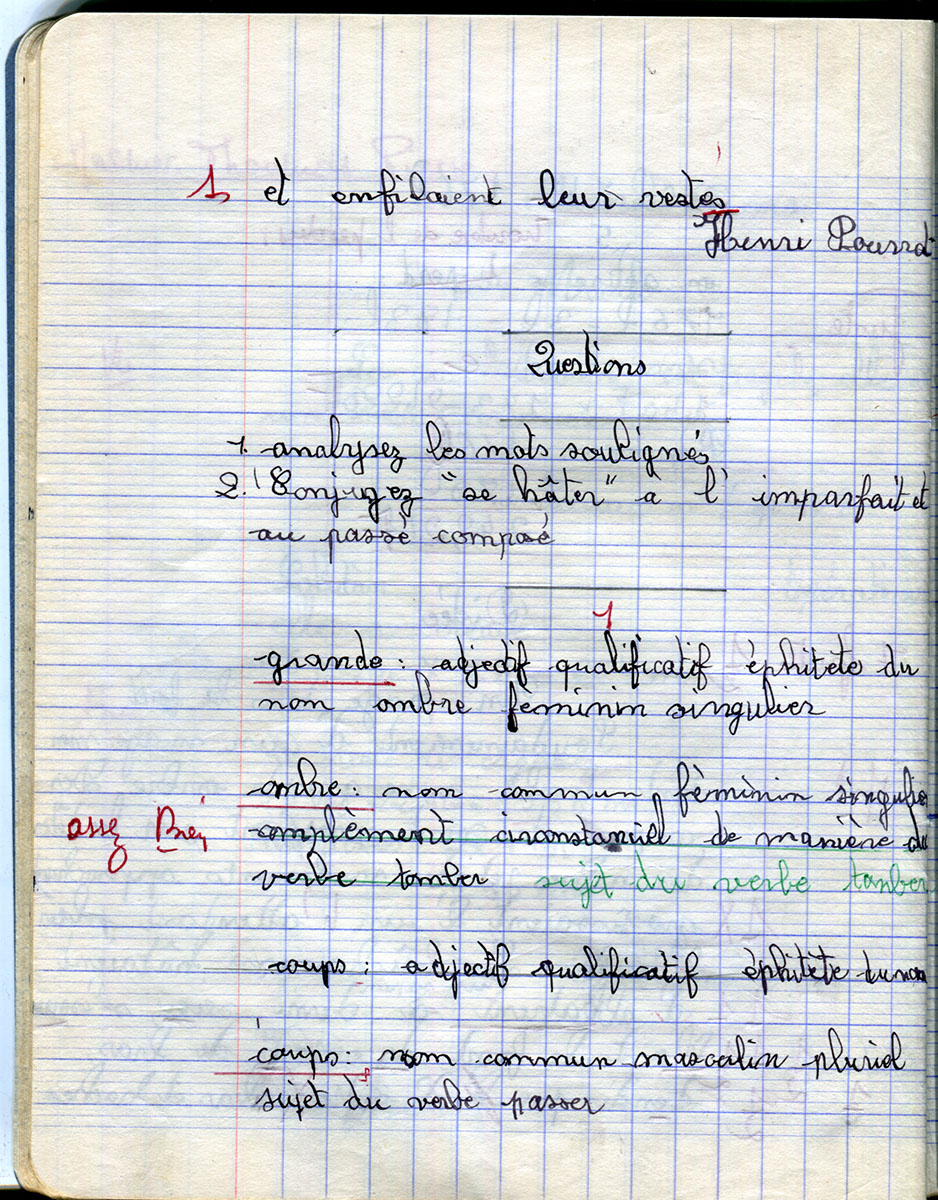 1 et enfilaient leur vestes
Henri Pourrat
Questions
1. analysez les mots soulignés
2. Conjugez "se hâter" à l'imparfait et
au passé composé
1
grande : adjectif qualificatif èphitète du
nom ombre fèminin singulier
ombre : nom commun fèminin singulie
assez Bien complèment circonstanciel de manière du
verbe tomber sujet du verbe tanber
coups : adjectif qualificatif èphitète du nom
coups : nom commun masculin pluriel
sujet du verbe passer